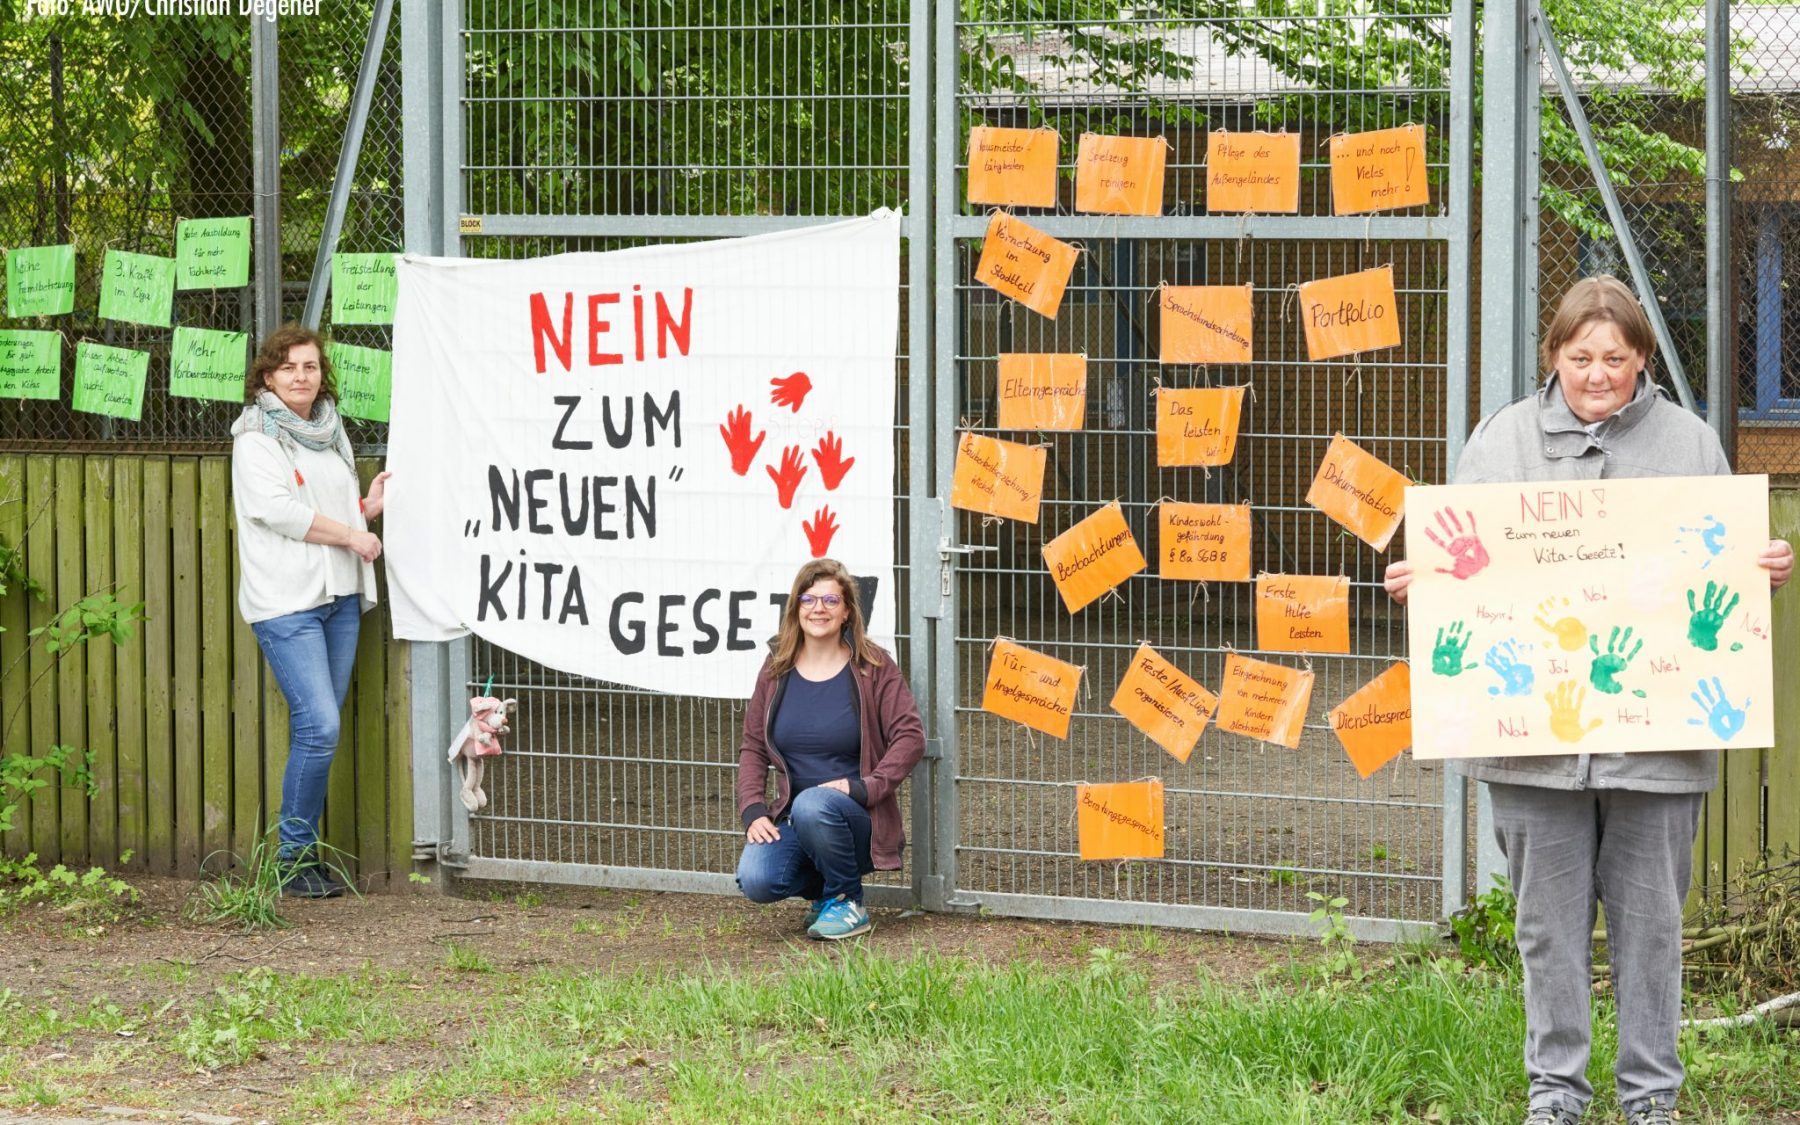 Foto: AWO/Christian Degener
Gute Ausbildung
für mehr
Fachkräfte
Keine
Fremdbetreuung
3. Kraft
im Kiga
Freistellung
der
Leitungen
für gute
Arbeit
in den Kitas
Unsere Arbeit
Mehr
Vorbereitungszeit
Kleinere
Gruppen
BLOCK
NEIN
ZUM
„NEUEN“
KITA GESE
Hausmeister-
tätigkeiten
Spielzeug
reinigen
Pflege des
Außengeländes
... und noch
Vieles
mehr!
Vernetzung
im
Stadtteil
Sprachstandserhebung
Portfolio
Elterngespräche
Das
leisten
wir!
Sauberkeitserziehung/
wickeln
Dokumentation
Beobachtungen
Kindeswohl-
gefährdung
§ 8a SGB 8
Erste
Hilfe
leisten
Tür- und
Angelgespräche
Feste/Ausflüge
organisieren
Eingewöhnung
von mehreren
Kindern
gleichzeitig
Dienstbesprec
Beratungsgespräche
NEIN!
Zum neuen
Kita-Gesetz!
No!
Hayır!
Ne!
Jo!
Nie!
Na!
Her!